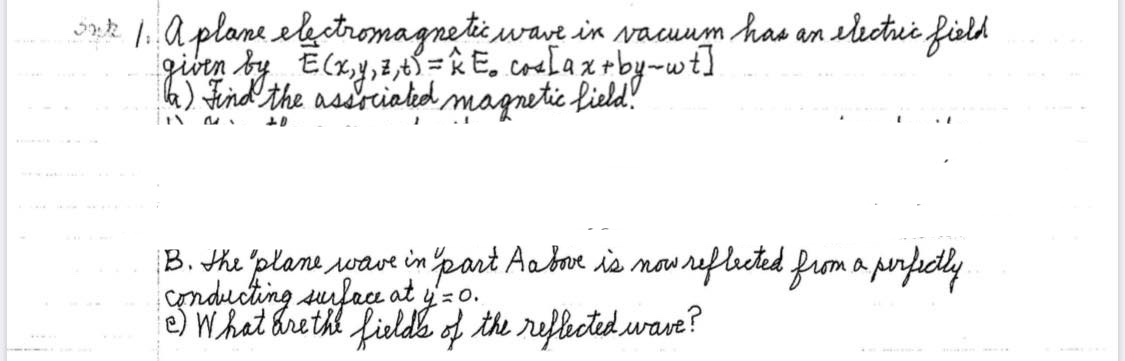 1. A plane electromagnetic wave in vacuum has an electric field
given by E⃗(x,y,z,t) = k̂ E₀ cos[ax+by-wt]
a) Find the associated magnetic field.
B. the plane wave in part A above is now reflected from a perfectly
conducting surface at y=0.
e) What are the fields of the reflected wave?